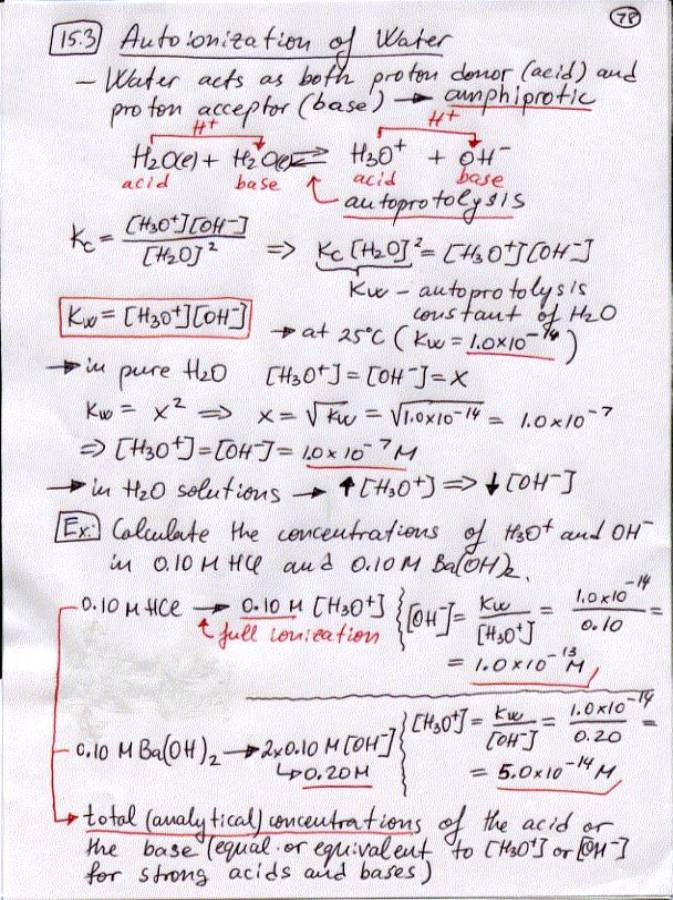 78
15.3 Autoionization of Water
– Water acts as both proton donor (acid) and
proton acceptor (base) → amphiprotic
H+ H+
H2O(l) + H2O(l) ⇌ H3O+ + OH−
acid base acid base
autoprotolysis
Kc = [H3O+][OH−] / [H2O]² ⇒ Kc [H2O]² = [H3O+][OH−]
Kw – autoprotolysis
constant of H2O
Kw = [H3O+][OH−]
→ at 25°C (Kw = 1.0×10−14)
→ in pure H2O [H3O+] = [OH−] = x
Kw = x² ⇒ x = √Kw = √1.0×10−14 = 1.0×10−7
⇒ [H3O+] = [OH−] = 1.0×10−7 M
→ in H2O solutions → ↑[H3O+] ⇒ ↓[OH−]
Ex: Calculate the concentrations of H3O+ and OH−
in 0.10 M HCl and 0.10 M Ba(OH)2.
0.10 M HCl → 0.10 M [H3O+] { [OH−] = Kw / [H3O+] = 1.0×10−14 / 0.10 =
full ionization
= 1.0×10−13 M
0.10 M Ba(OH)2 → 2×0.10 M [OH−] { [H3O+] = Kw / [OH−] = 1.0×10−14 / 0.20 =
↳ 0.20 M
= 5.0×10−14 M
→ total (analytical) concentrations of the acid or
the base (equal or equivalent to [H3O+] or [OH−]
for strong acids and bases)